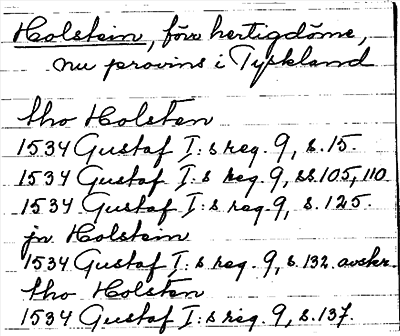 Holstein, förr hertigdöme,
nu provins i Tyskland
tho Holsten
1534 Gustaf I:s reg. 9, s. 15.
1534 Gustaf I:s reg. 9, ss. 105, 110
1534 Gustaf I:s reg. 9, s. 125.
jn Holstein
1534 Gustaf I:s reg. 9, s. 132. avskr.
tho Holsten
1534 Gustaf I:s reg. 9, s. 137.